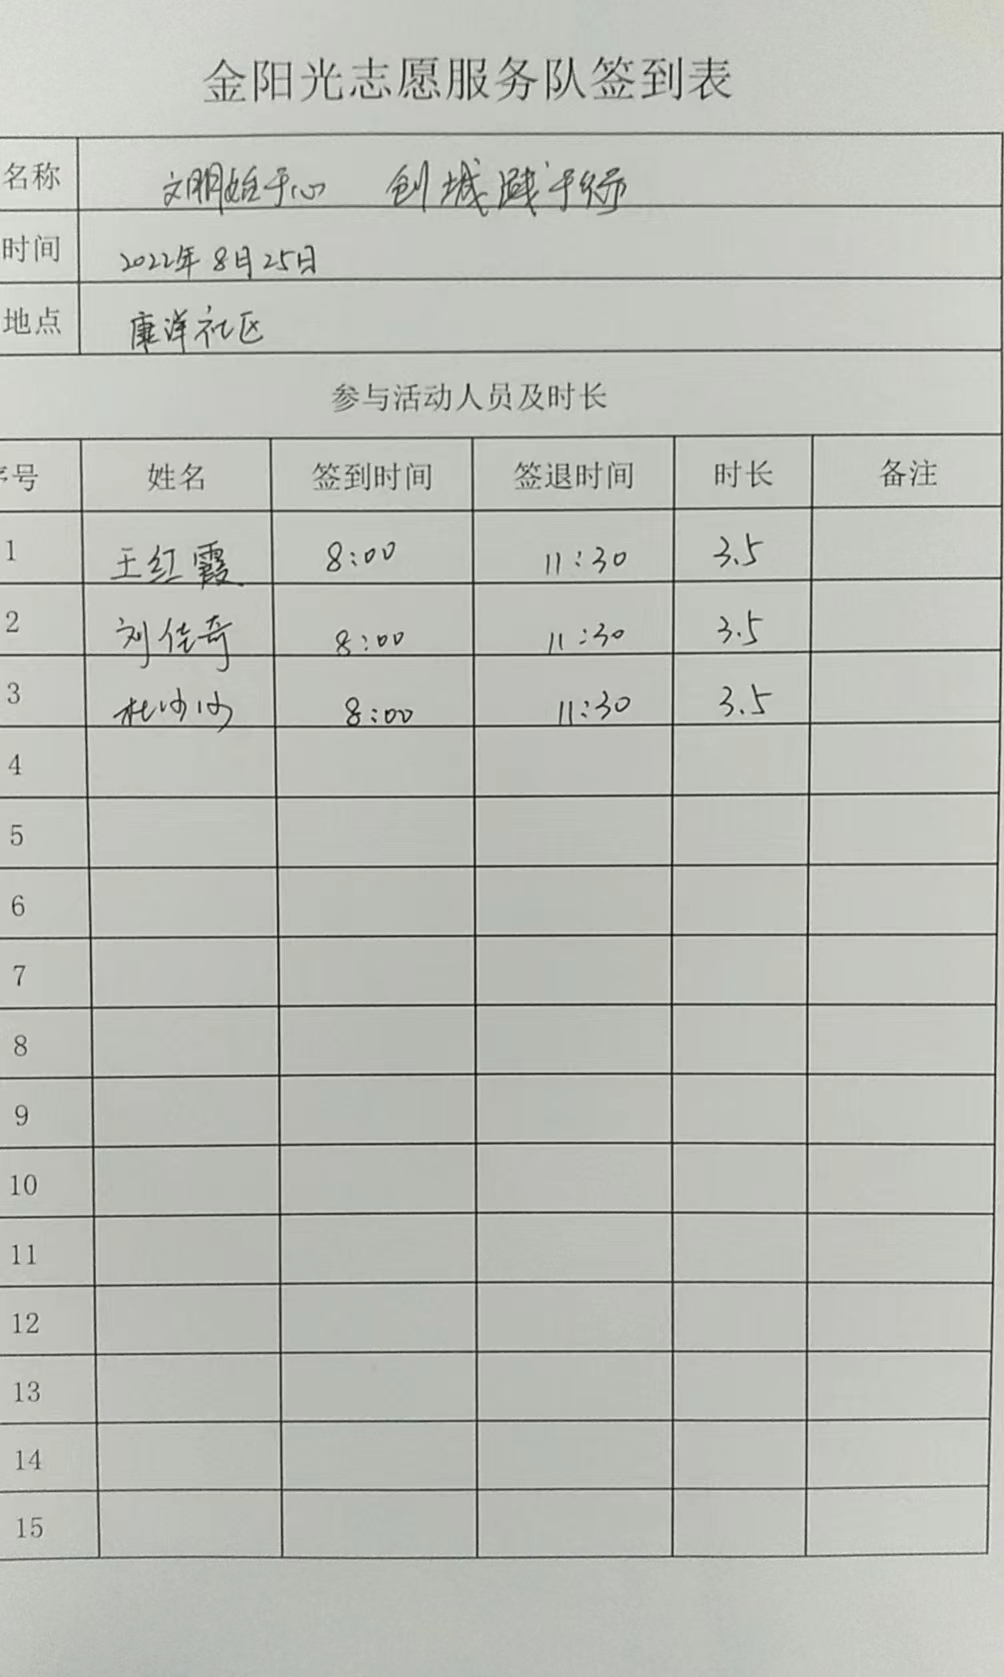 金阳光志愿服务队签到表
名称 文明始于心 创城践于行
时间 2022年8月25日
地点 康洋社区
参与活动人员及时长
序号 姓名 签到时间 签退时间 时长 备注
1 王红霞 8:00 11:30 3.5
2 刘佳奇 8:00 11:30 3.5
3 杜沙沙 8:00 11:30 3.5
4
5
6
7
8
9
10
11
12
13
14
15